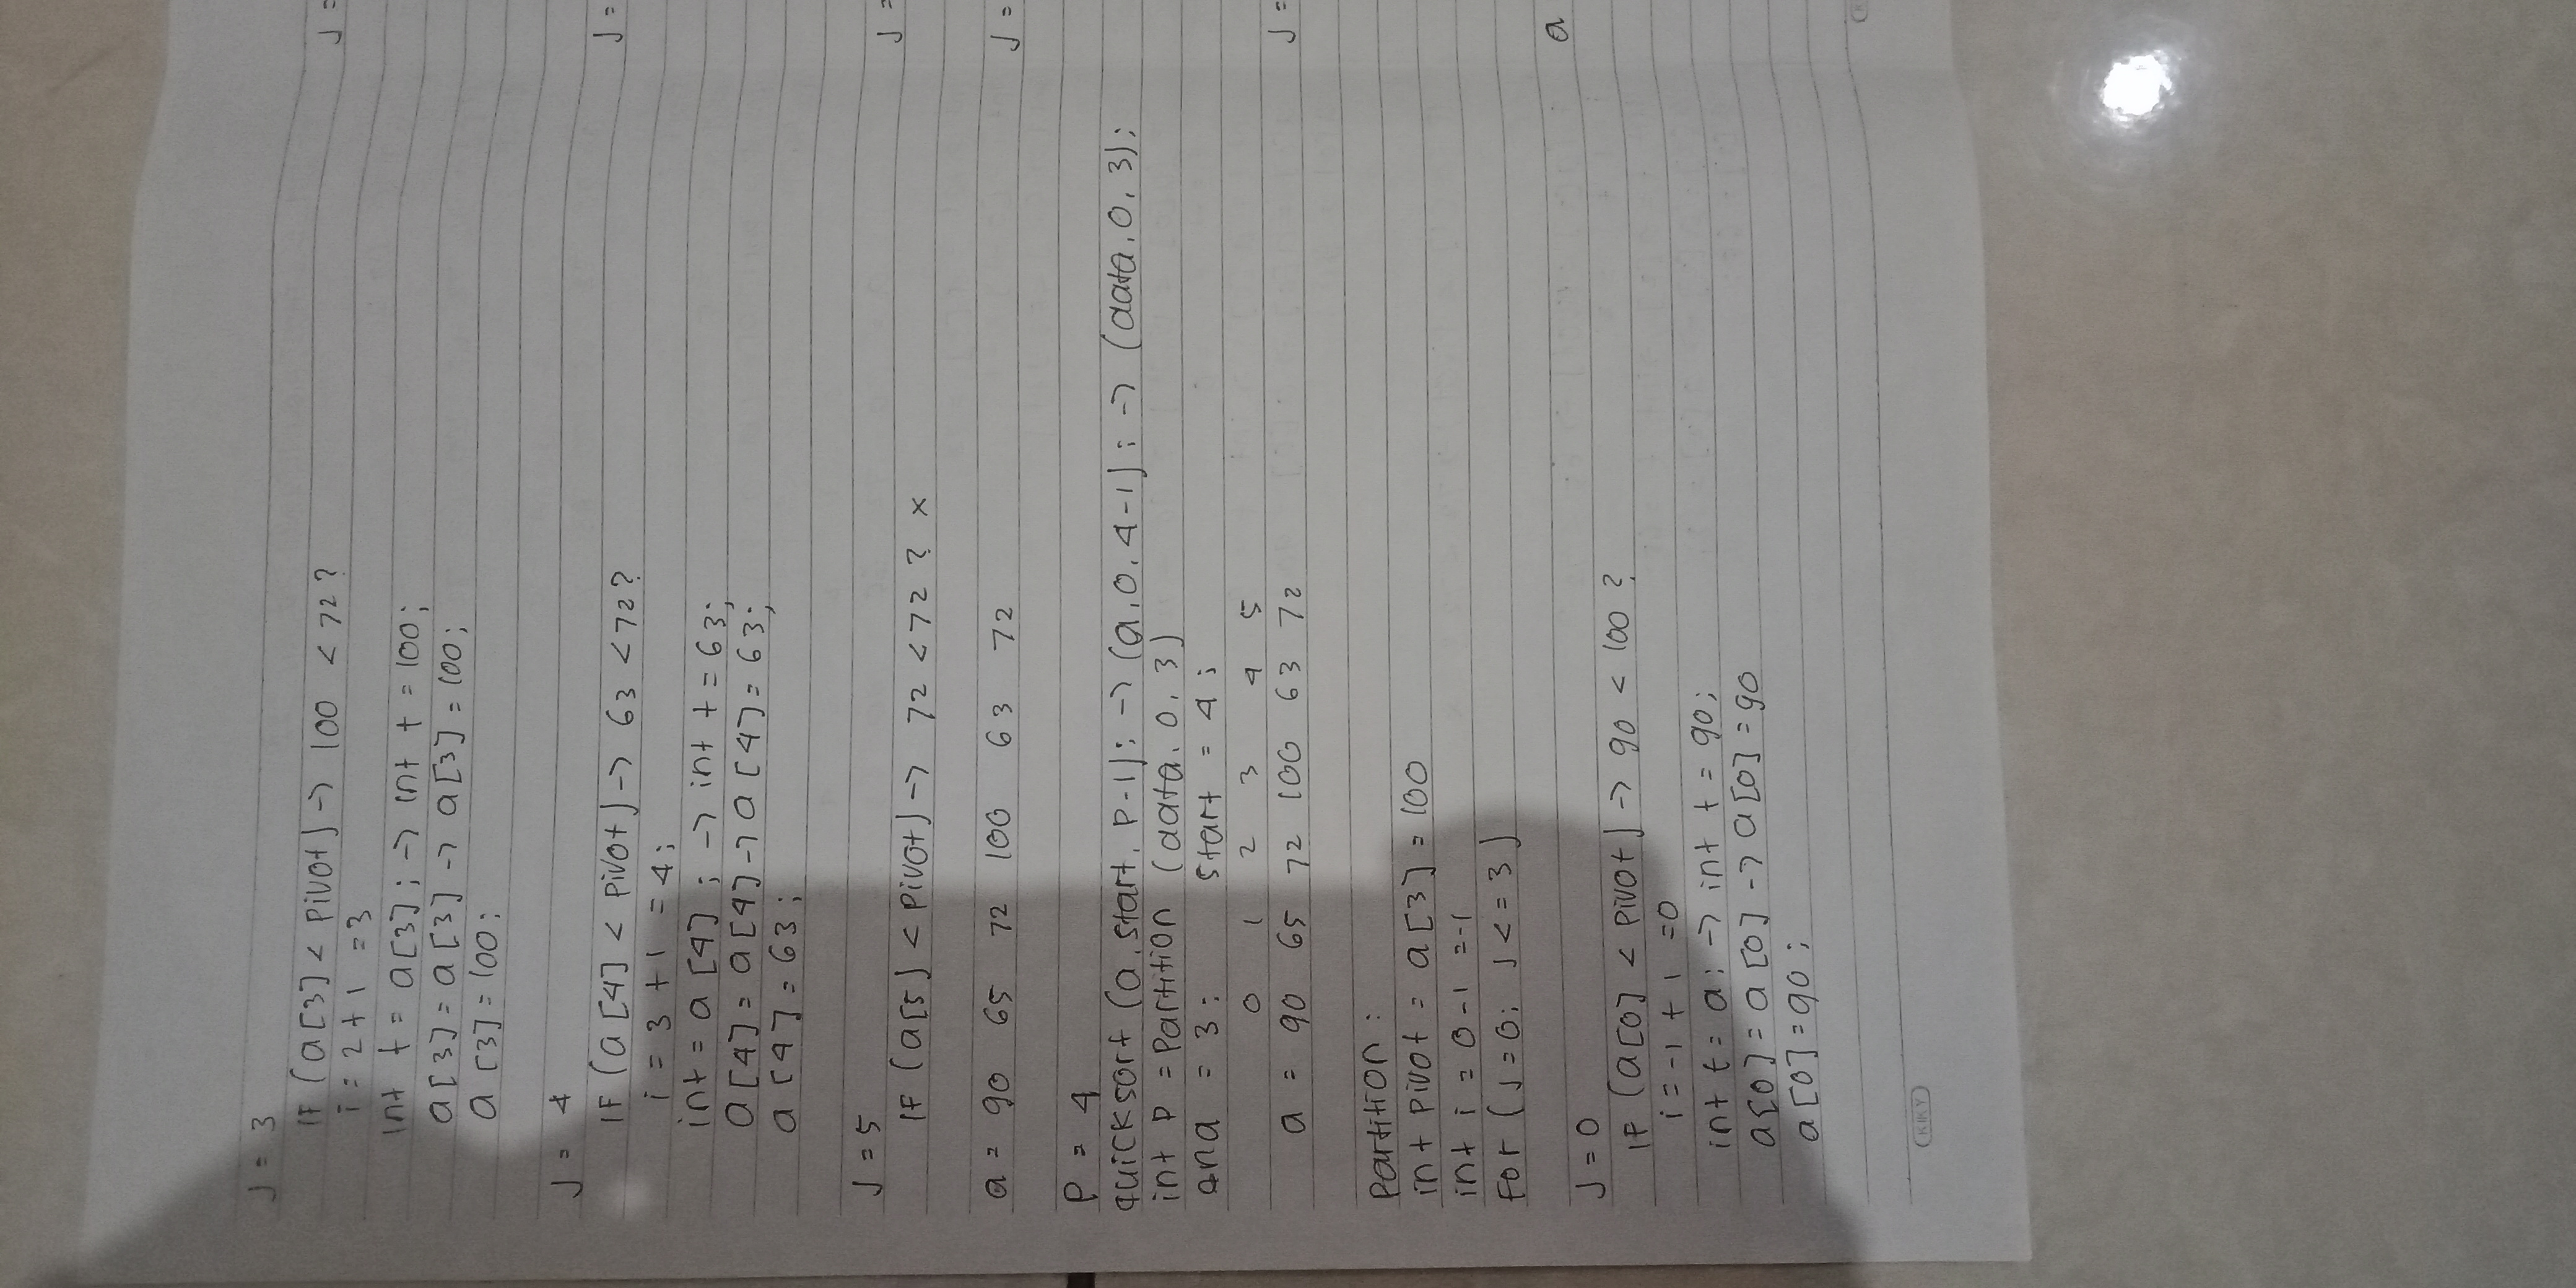 J = 3
IF (a[3] < Pivot) -> 100 < 72?
i = 2 + 1 = 3
int t = a[3]; -> int t = 100;
a[3] = a[3] -> a[3] = 100;
a [3] = 100;
J = 4
IF (a [4] < Pivot) -> 63 < 72?
i = 3 + 1 = 4;
int = a [4] ; -> int t = 63;
a [4] = a[4] -> a [4] = 63;
a [4] = 63;
J = 5
IF (a[5] < Pivot) -> 72 < 72 ? x
a = 90 65 72 100 63 72
P = 4
quicksort (a, start, P-1); -> (a, 0, 4-1); -> (data, 0, 3);
int P = Partition (data, 0, 3)
end = 3; start = 4;
0 1 2 3 4 5
a = 90 65 72 100 63 72
Partition :
int Pivot = a [3] = 100
int i = 0 - 1 = -1
For (J = 0; J <= 3)
J = 0
IF (a[0] < Pivot) -> 90 < 100 ?
i = -1 + 1 = 0
int t = a; -> int t = 90;
a[0] = a [0] -> a[0] = 90
a [0] = 90 ;
KIKY
J =
J =
J =
J =
J =
a